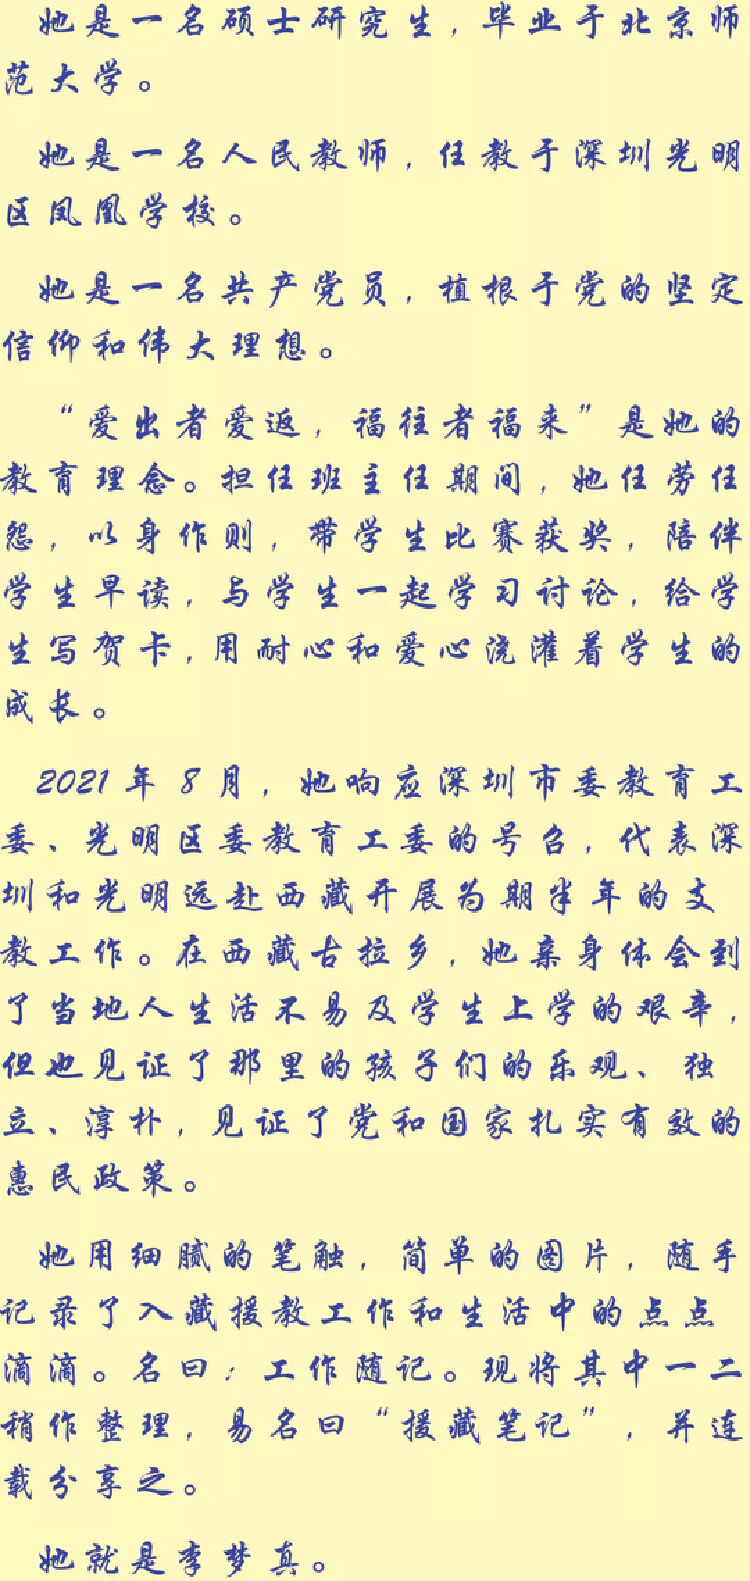 她是一名硕士研究生，毕业于北京师
范大学。
她是一名人民教师，任教于深圳光明
区凤凰学校。
她是一名共产党员，植根于党的坚定
信仰和伟大理想。
“爱出者爱返，福往者福来”是她的
教育理念。担任班主任期间，她任劳任
怨，以身作则，带学生比赛获奖，陪伴
学生早读，与学生一起学习讨论，给学
生写贺卡，用耐心和爱心浇灌着学生的
成长。
2021年8月，她响应深圳市委教育工
委、光明区委教育工委的号召，代表深
圳和光明远赴西藏开展为期半年的支
教工作。在西藏古拉乡，她亲身体会到
了当地人生活不易及学生上学的艰辛，
但也见证了那里的孩子们的乐观、独
立、淳朴，见证了党和国家扎实有效的
惠民政策。
她用细腻的笔触，简单的图片，随手
记录了入藏援教工作和生活中的点点
滴滴。名曰：工作随记。现将其中一二
稍作整理，易名曰“援藏笔记”，并连
载分享之。
她就是李梦真。